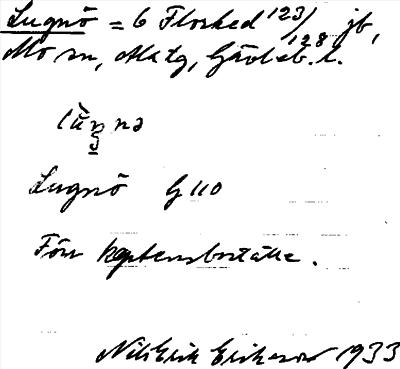 Lugnö = 6 Florhed 123/128 jb,
Mo sn, Mktg, Gävleb. l.
Lugnö G 110
Förr kaptensboställe.
Nils Erik Eriksson 1933